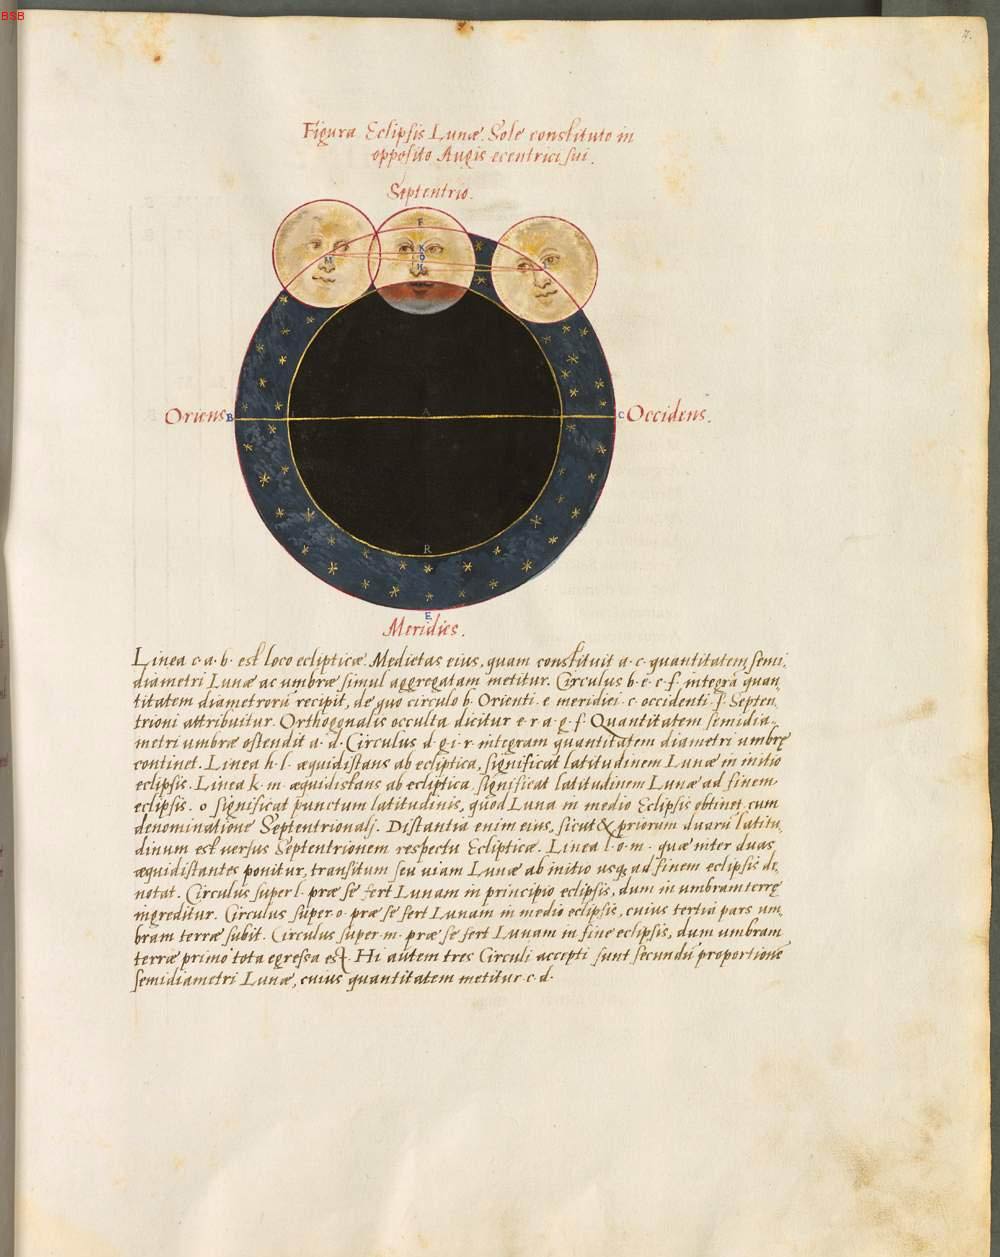 BSB
7.
Figura Eclipsis Lunæ. Sole constituto in
opposito Augis ecentrici sui.
Septentrio.
F
K
O
H
M
L
Oriens B
A
D
C Occidens.
R
E
Meridies.
Linea c·a·b· est loco eclipticæ. Medietas eius, quam constituit a·c· quantitatem semi,
diametri Lunæ ac umbræ simul aggregatam metitur. Circulus b·e·c·f· integrā quan
titatem diametrorū recipit, de quo circulo b· Orienti· e· meridiei· c· occidenti· f· Septen
trioni attribuitur. Orthogonalis occulta dicitur e·r·a·g·f· Quantitatem semidia,
metri umbræ ostendit a·d· Circulus d·g·i·r· integram quantitatem diametri umbrę
continet. Linea h·l· æquidistans ab ecliptica, significat latitudinem Lunæ in initio
eclipsis. Linea k·m· æquidistans ab ecliptica, significat latitudinem Lunæ ad finem
eclipsis. o significat punctum latitudinis, quod Luna in medio Eclipsis obtinet cum
denominatione Septentrionalj. Distantia enim eius, sicut & priorum duarū latitu,
dinum est versus Septentrionem respectu Eclipticæ. Linea l·o·m· quæ inter duas
æquidistantes ponitur, transitum seu uiam Lunæ ab initio usq; ad finem eclipsis de,
notat. Circulus super l· præ se fert Lunam in principio eclipsis, dum in umbram terrę
ingreditur. Circulus super o· præ se fert Lunam in medio eclipsis, cuius tertia pars um,
bram terræ subit. Circulus super m· præ se fert Lunam in fine eclipsis, dum umbram
terræ primo tota egressa est. Hi autem tres Circuli accepti sunt secundū proportionē
semidiametri Lunæ, cuius quantitatem metitur c·d·